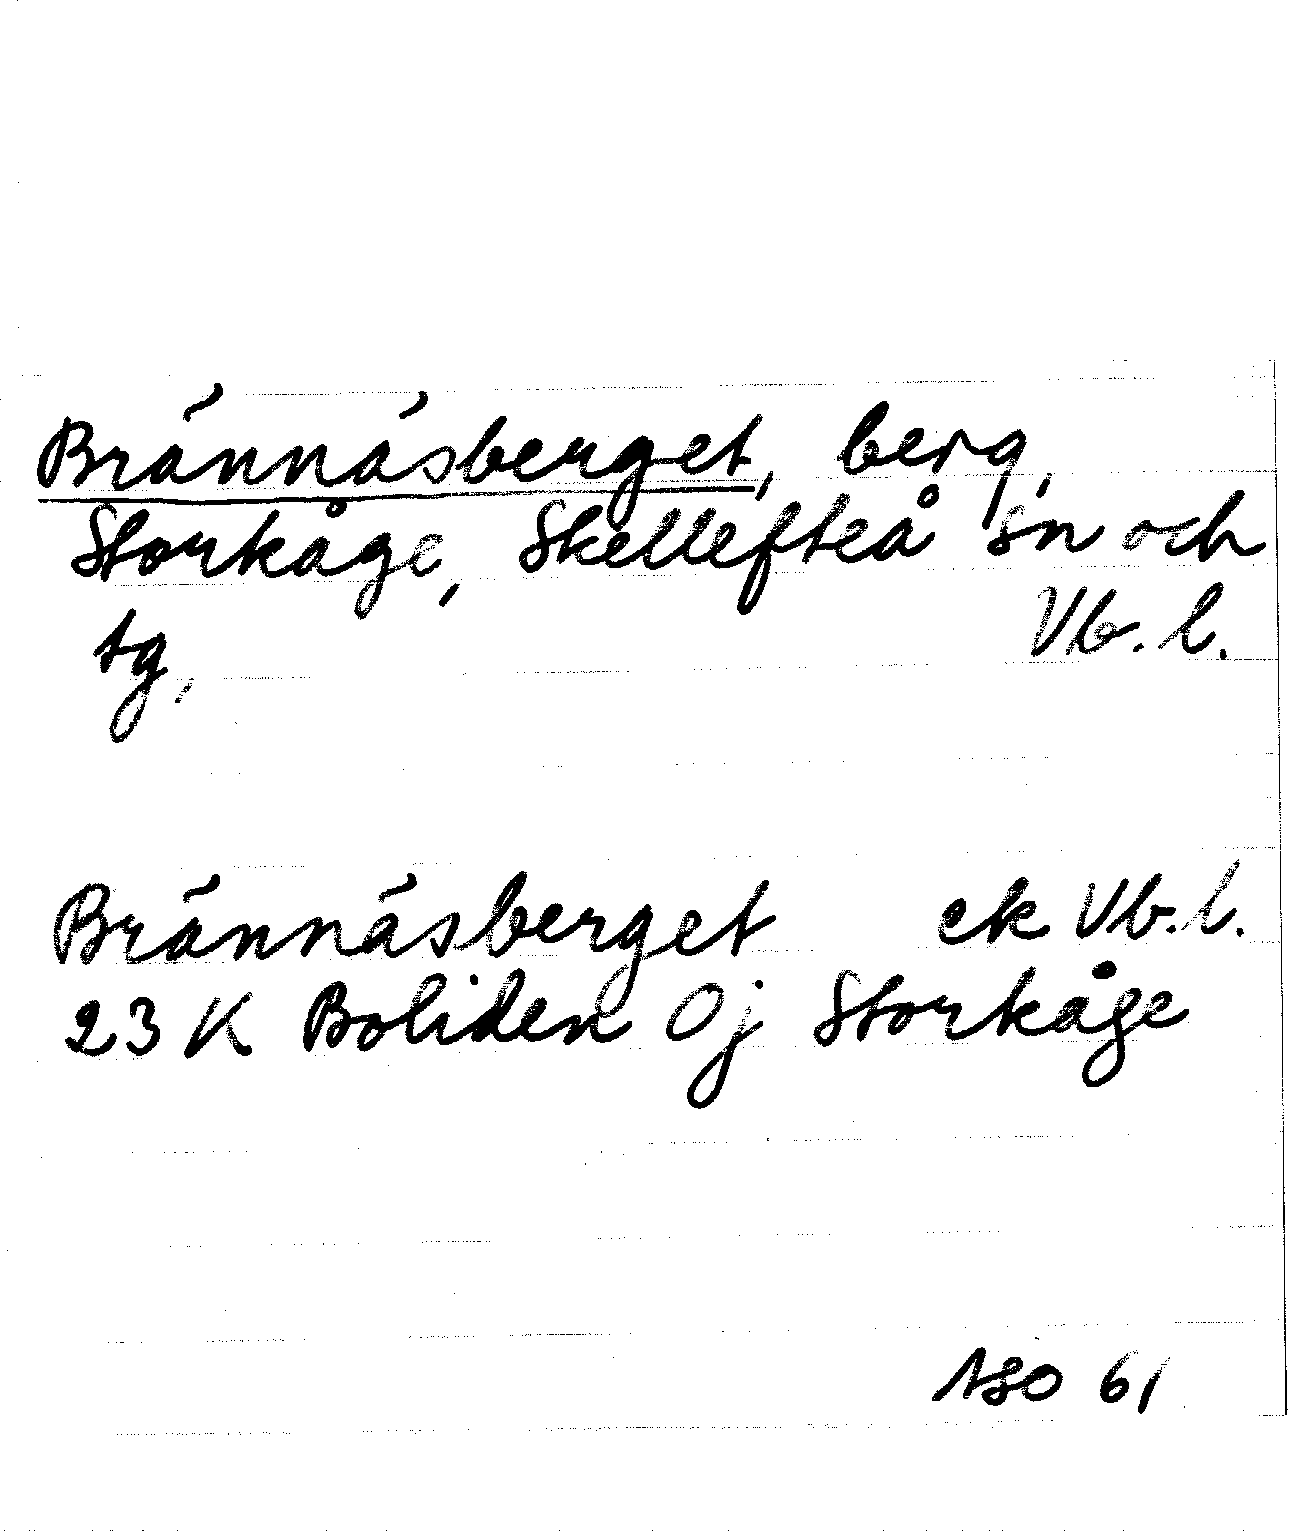 Brännäsberget, berg,
Storkåge, Skellefteå sn och
tg, Vb. l.
Brännäsberget ek Vb. l.
23 K Boliden 0j Storkåge
ASO 61